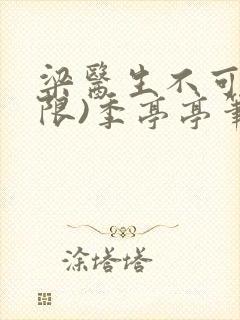 梁医生不可
限)季亭亭
涂塔塔